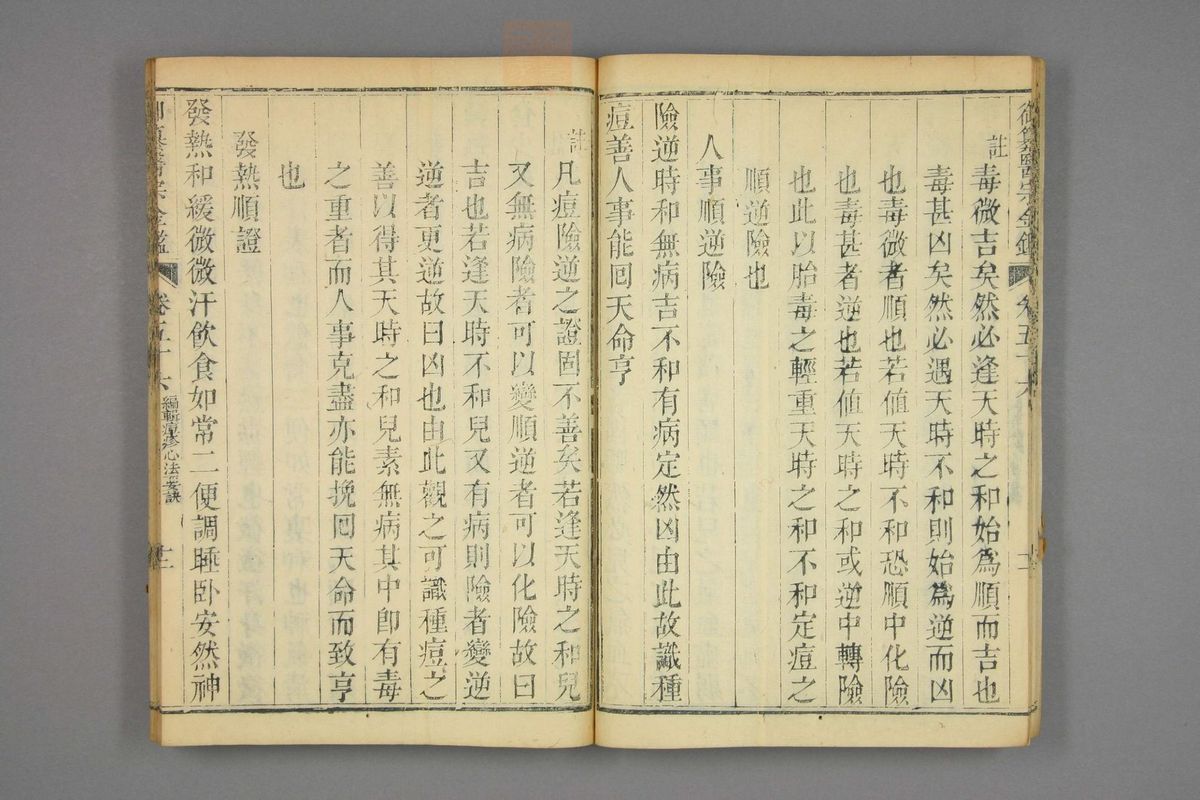 御纂醫宗金鑑 卷五十六
註
毒微吉矣然必逢天時之和始爲順而吉也
毒甚凶矣然必遇天時不和則始爲逆而凶
也毒微者順也若值天時不和恐順中化險
也毒甚者逆也若值天時之和或逆中轉險
也此以胎毒之輕重天時之和不和定痘之
順逆險也
人事順逆險
險逆時和無病吉不和有病定然凶由此故識種
痘善人事能囘天命亨
註
凡痘險逆之證固不善矣若逢天時之和兒
又無病險者可以變順逆者可以化險故曰
吉也若逢天時不和兒又有病則險者變逆
逆者更逆故曰凶也由此觀之可識種痘之
善以得其天時之和兒素無病其中卽有毒
之重者而人事克盡亦能挽囘天命而致亨
也
發熱順證
發熱和緩微微汗飲食如常二便調睡卧安然神
醫宗金鑑 卷五十六 編輯痘疹心法要訣